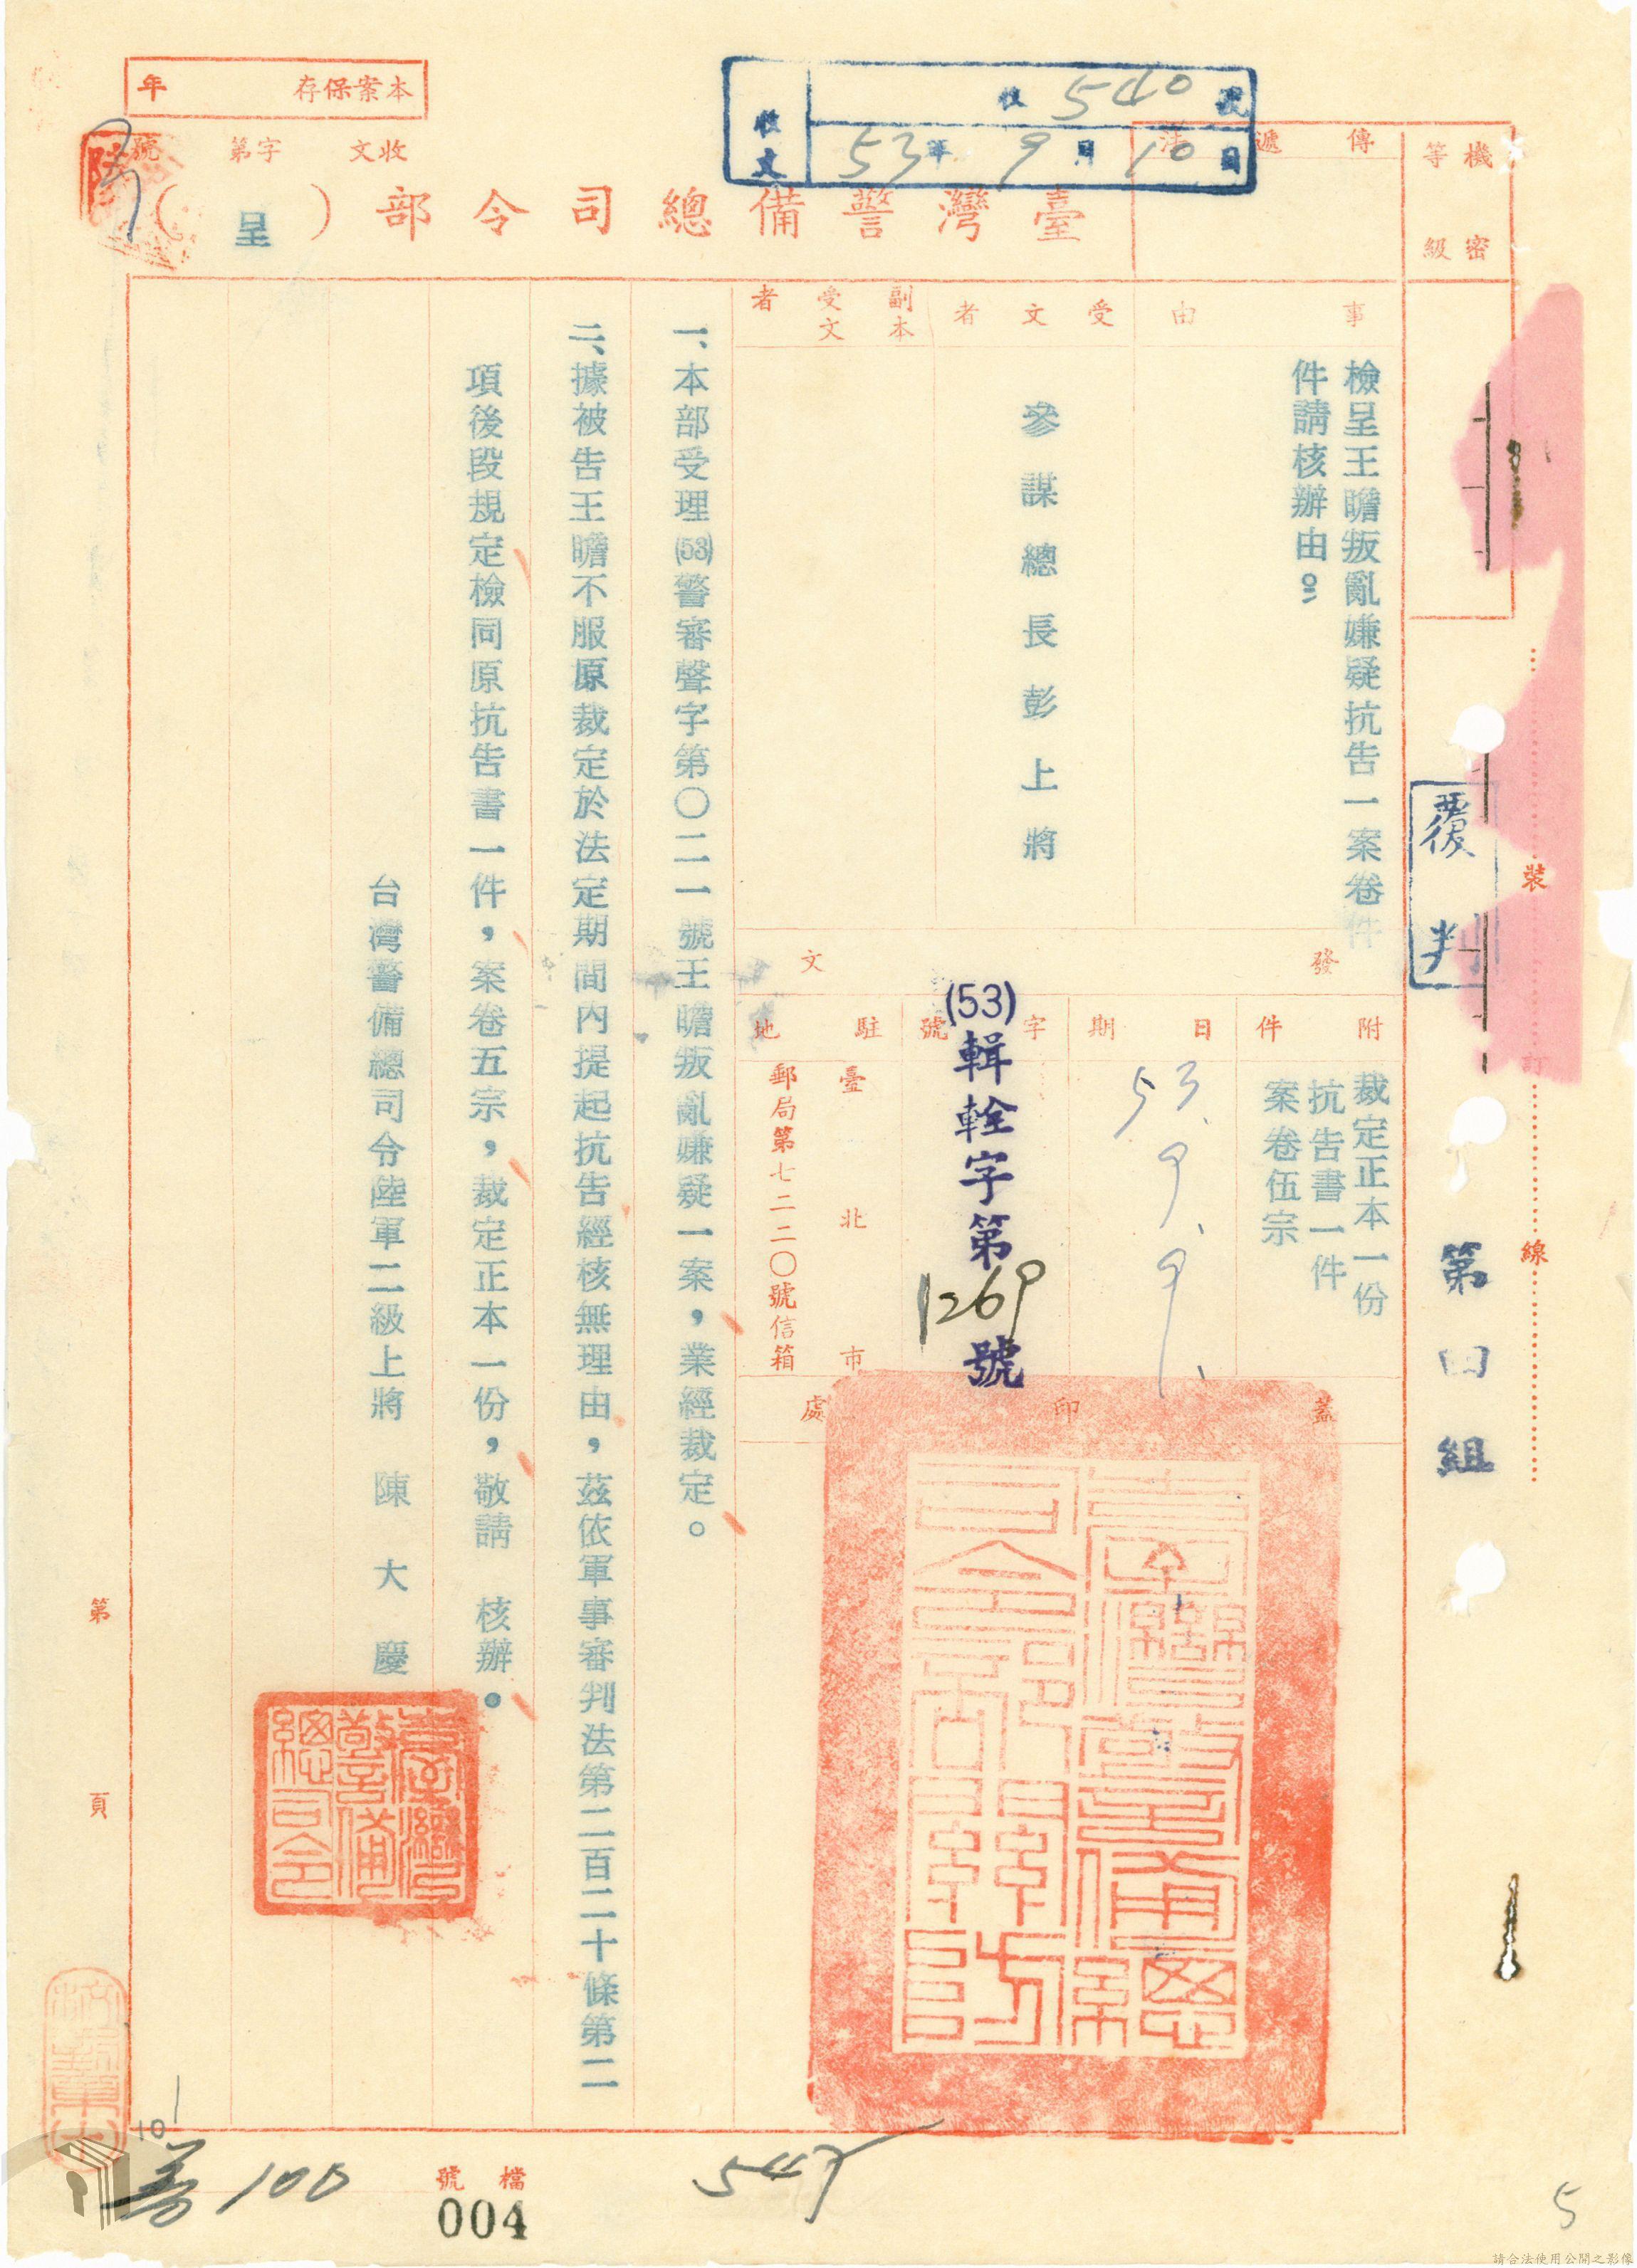 本案保存　年
收文　字第　號
收文
收540號
53年9月10日
傳遞法
機密等級
臺灣警備總司令部（呈）
事由
檢呈王瞻叛亂嫌疑抗告一案卷件
件請核辦由。
受文者
參謀總長彭上將
副本受文者
發文
附件
裁定正本一份
抗告書一件
案卷伍宗
日期
53.9.9.
字號
(53)輯輇字第1269號
駐地
臺北市
郵局第七二二〇號信箱
蓋印處
臺灣警備總司令部關防
一、本部受理(53)警審聲字第〇二一號王瞻叛亂嫌疑一案，業經裁定。
二、據被告王瞻不服原裁定於法定期間內提起抗告經核無理由，茲依軍事審判法第二百二十條第二
項後段規定檢同原抗告書一件，案卷五宗，裁定正本一份，敬請　核辦。
台灣警備總司令陸軍二級上將　陳大慶
臺灣警備總司令
覆判
第四組
裝訂線
第　頁
檔號
004
100
10
5
請合法使用公開之影像